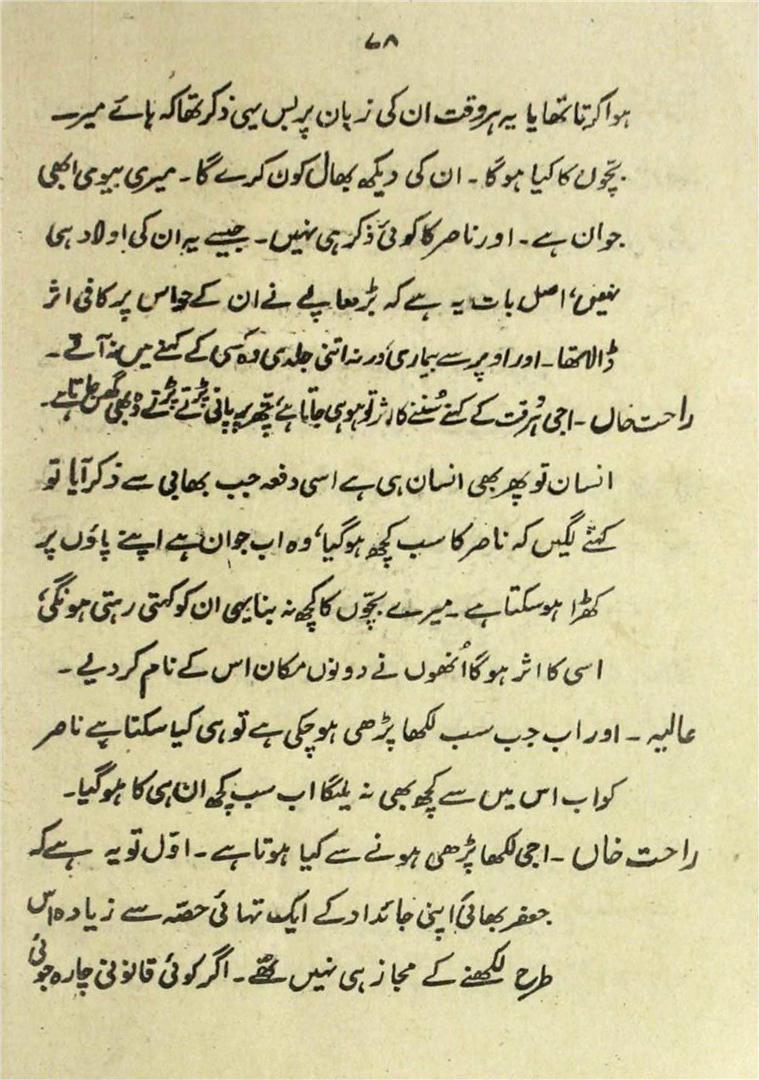 ۶۸
ہوا کرتا تھا یا یہ ہر وقت ان کی زبان پر بس یہی ذکر تھا کہ ہائے میرے
بچّوں کا کیا ہوگا ۔ ان کی دیکھ بھال کون کرے گا ۔ میری بیوی ابھی
جوان ہے ۔ اور ناصر کا کوئی ذکر ہی نہیں ۔ جیسے یہ ان کی اولاد ہی
نہیں، اصل بات یہ ہے کہ بڑھاپے نے ان کے حواس پر کافی اثر
ڈالا تھا ۔ اور اوپر سے بیماری، ورنہ اتنی جلدی وہ کسی کے کہنے میں نہ آتے ۔
راحت خاں ۔ اجی ہر وقت کے کہنے سُننے کا اثر تو ہو ہی جاتا ہے، پتھر پر پانی پڑتے پڑتے وہ بھی گھس جاتا ہے ۔
انسان تو پھر بھی انسان ہی ہے اسی دفعہ جب بھابی سے ذکر آیا تو
کہنے لگیں کہ ناصر کا سب کچھ ہوگیا، وہ اب جوان ہے اپنے پاؤں پر
کھڑا ہوسکتا ہے ۔ میرے بچّوں کا کچھ نہ بنا یہی ان کو کہتی رہتی ہونگی،
اسی کا اثر ہوگا اُنھوں نے دونوں مکان اس کے نام کر دیے ۔
عالیہ ۔ اور اب جب سب لکھا پڑھی ہوچکی ہے تو ہی کیا سکتا ہے ناصر
کو اب اس میں سے کچھ بھی نہ ملیگا اب سب کچھ ان ہی کا ہوگیا ۔
راحت خاں ۔ اجی لکھا پڑھی ہونے سے کیا ہوتا ہے ۔ اوّل تو یہ ہے کہ
جعفر بھائی اپنی جائداد کے ایک تہائی حصّہ سے زیادہ اس
طرح لکھنے کے مجاز ہی نہیں تھے ۔ اگر کوئی قانونی چارہ جوئی